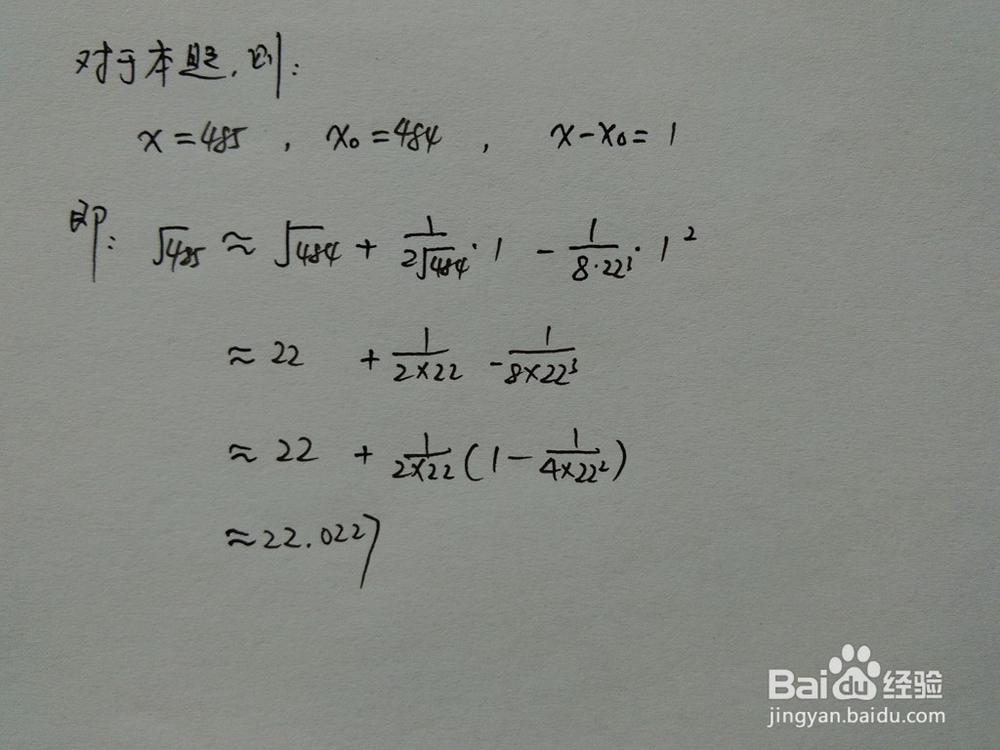 对于本题,则:
x=485 , x₀=484 , x-x₀=1
即: √485 ≈ √484 + 1/(2√484)·1 - 1/(8·22³)·1²
≈ 22 + 1/(2×22) - 1/(8×22³)
≈ 22 + 1/(2×22)(1 - 1/(4×22²))
≈22.0227
Baidu经验
jingyan.baidu.com